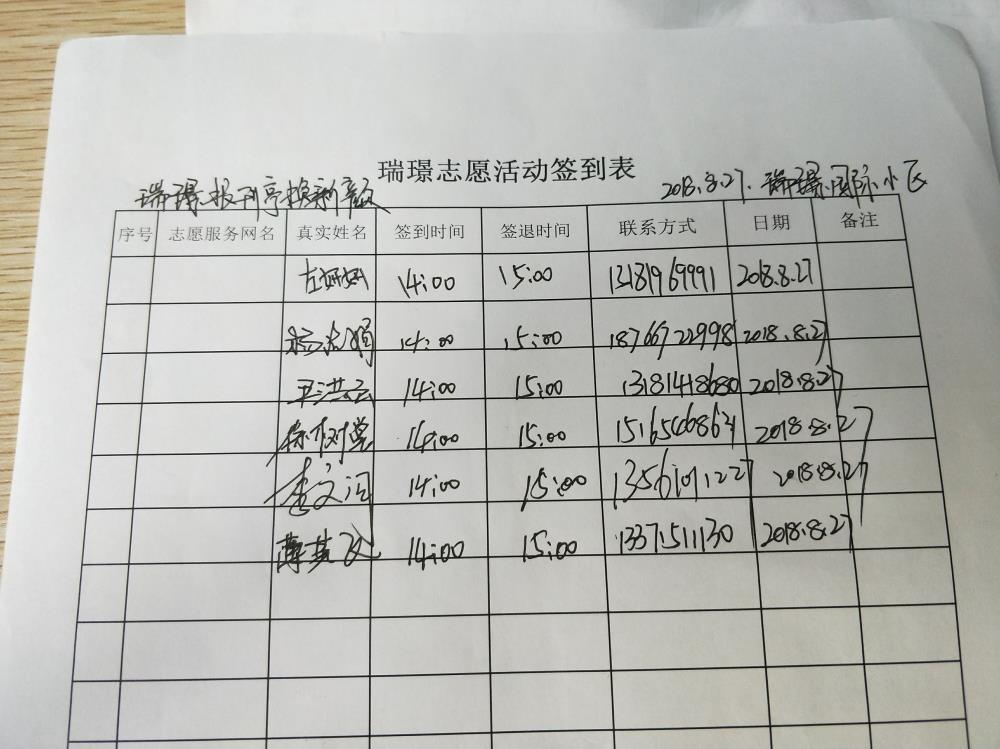 瑞璟志愿活动签到表
瑞璟报刊亭换新颜
2018.8.27. 瑞璟国际小区
序号 志愿服务网名 真实姓名 签到时间 签退时间 联系方式 日期 备注
14:00 15:00 13181969991 2018.8.27
14:00 15:00 18766722998 2018.8.27
平洪云 14:00 15:00 13181418680 2018.8.27
徐树堂 14:00 15:00 2018.8.27
李文河 14:00 15:00 2018.8.27
14:00 15:00 13371511130 2018.8.27